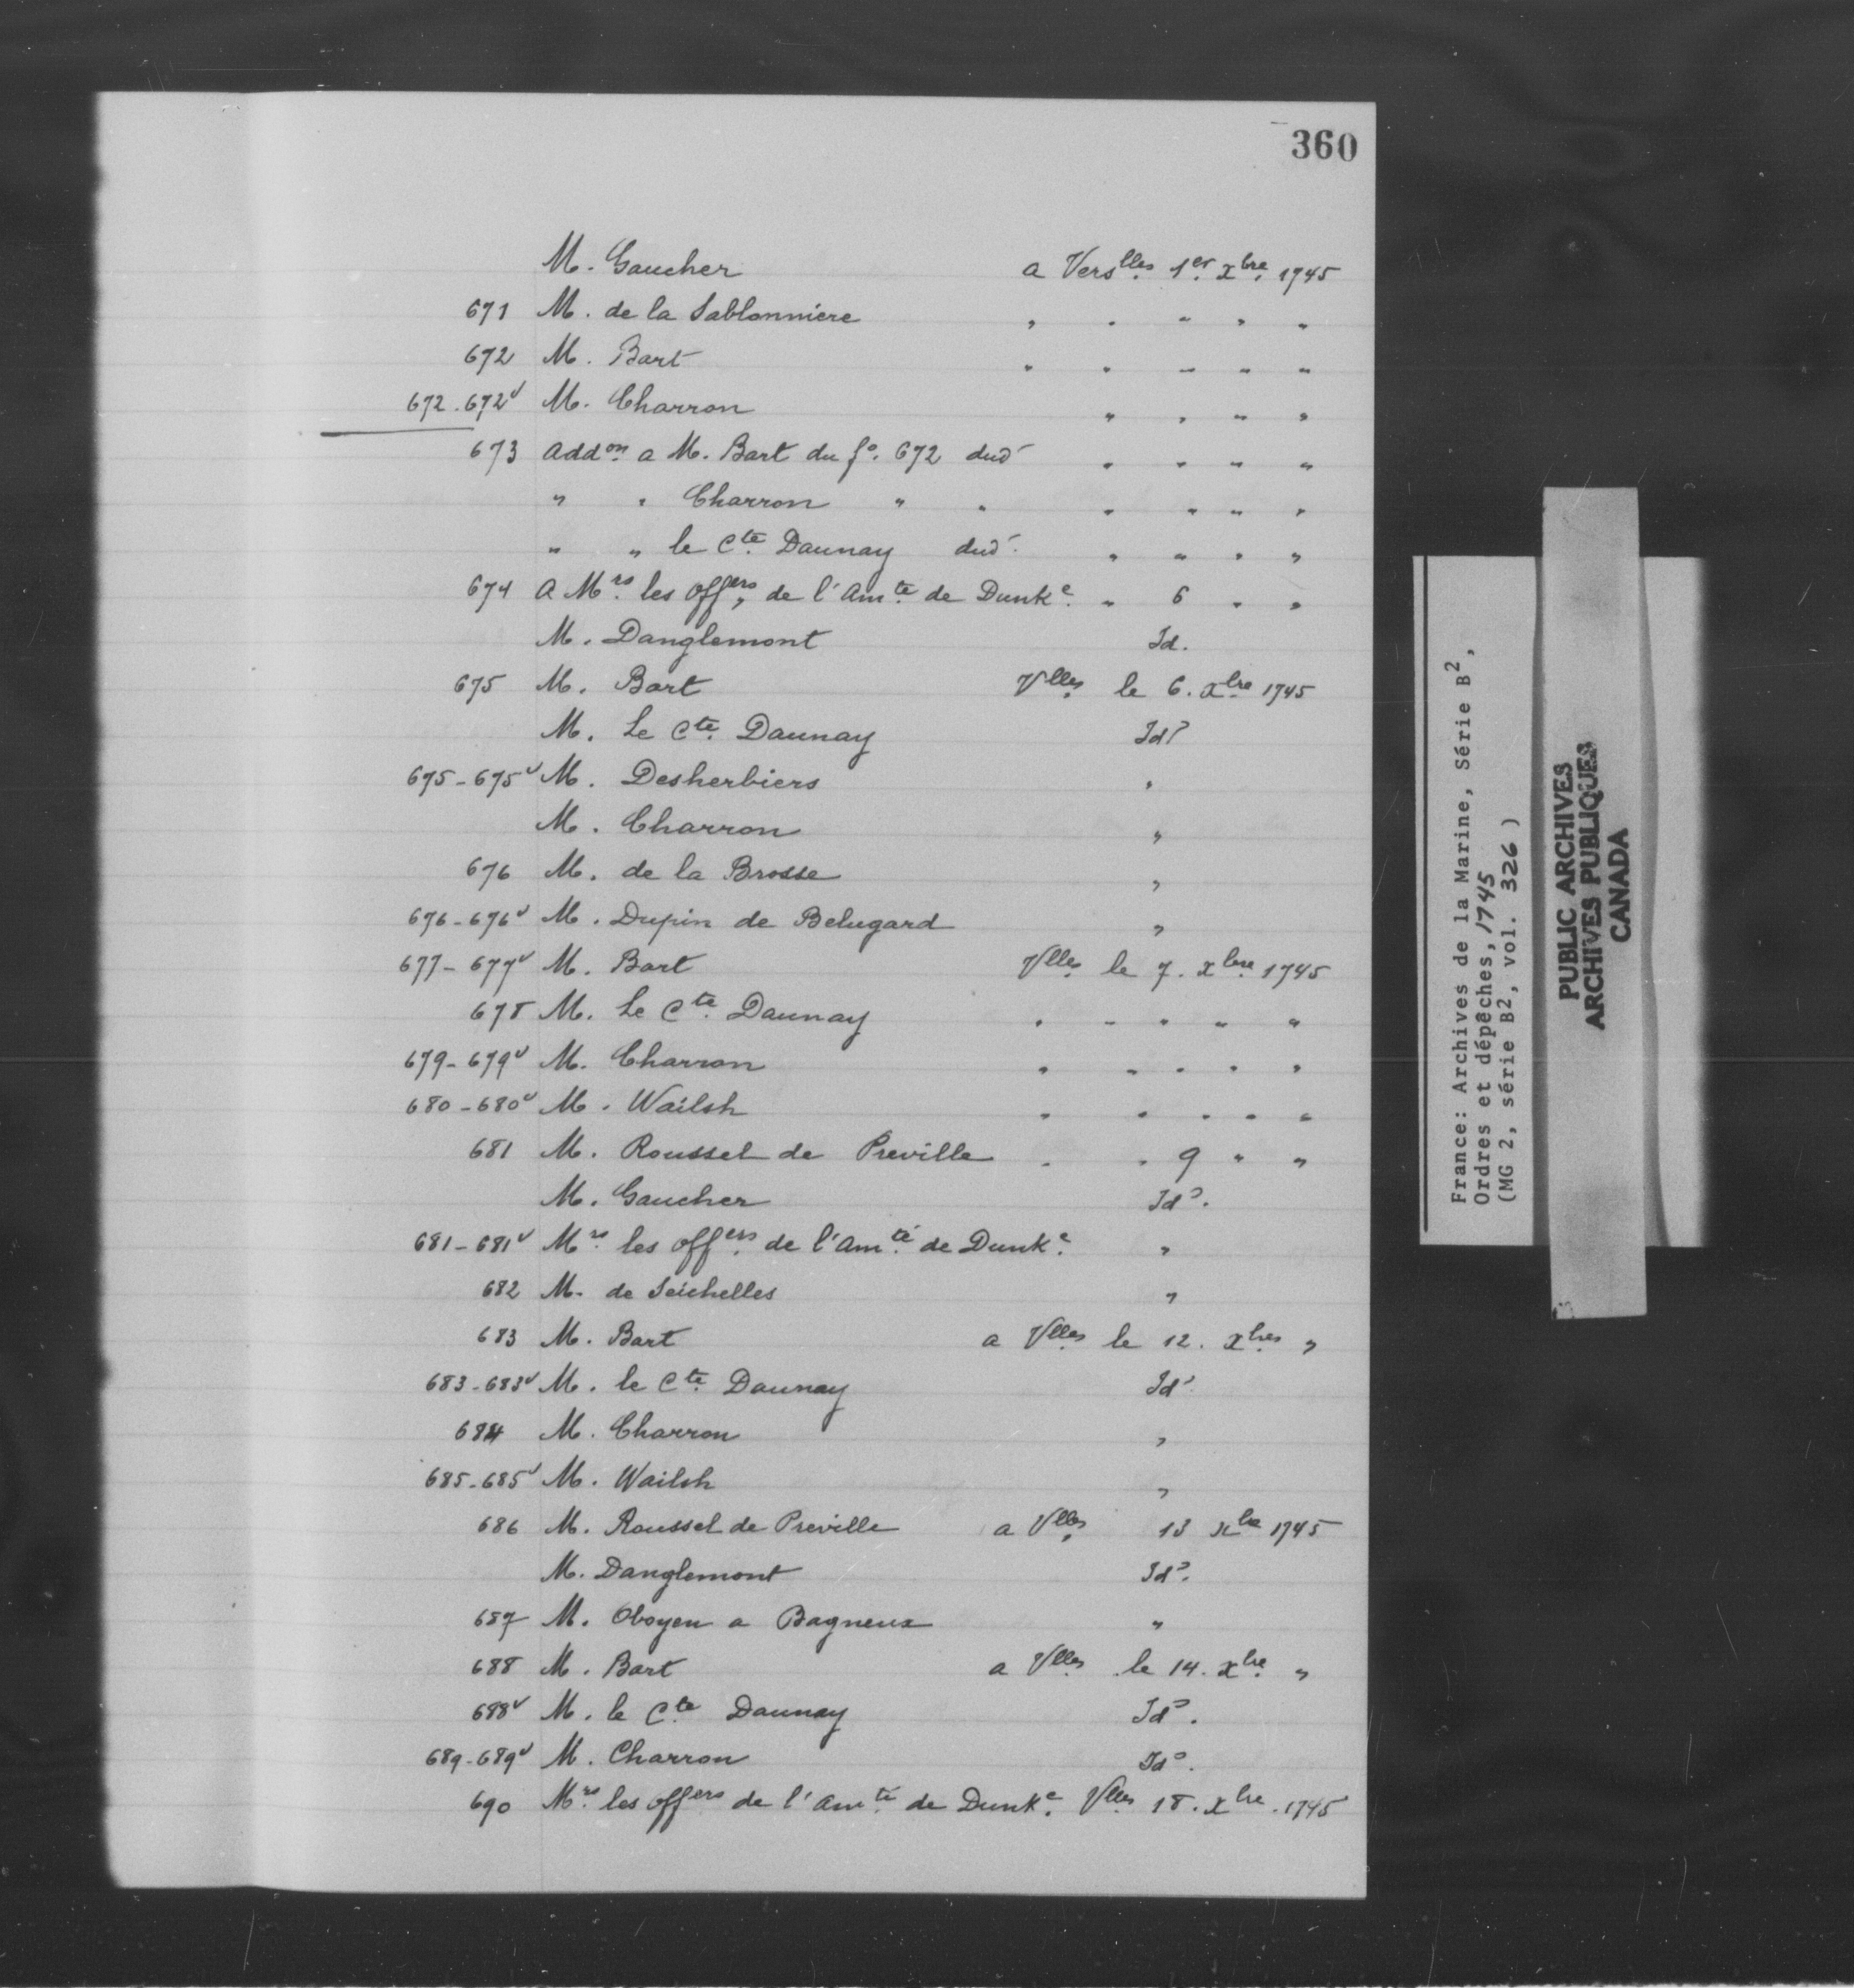 360
M. Gaucher a Vers^lles 1^er X^bre 1745
671 M. de la Sablonniere " " " " "
672 M. Bart " " " " "
672-672^v M. Charron " " " "
673 add^on a M. Bart du f^o. 672 dud " " " "
" " Charron " " " " " "
" " le C^te Daunay dud " " " "
674 a M^rs les off^ers de l'am^te de Dunk^e " 6 " "
M. Danglemont Id.
675 M. Bart V^lles le 6. X^bre 1745
M. Le C^te Daunay Id^o
675-675^v M. Desherbiers "
M. Charron "
676 M. de la Brosse "
676-676^v M. Dupin de Belugard "
677-677^v M. Bart V^lles le 7. X^bre 1745
678 M. Le C^te Daunay " " " " "
679-679^v M. Charron " " " " "
680-680^v M. Wailsh " " " " "
681 M. Roussel de Preville " " 9 " "
M. Gaucher Id^o.
681-681^v M^rs les off^ers de l'am^té de Dunk^e "
682 M. de Seichelles "
683 M. Bart a V^lles le 12. X^bres "
683-683^v M. le C^te Daunay Id^o
684 M. Charron "
685-685^v M. Wailsh "
686 M. Roussel de Preville a V^lles 13 X^bre 1745
M. Danglemont Id^o.
687 M. Oboyen a Bagneux "
688 M. Bart a V^lles le 14. X^bre "
688^v M. le C^te Daunay Id^o.
689-689^v M. Charron Id^o.
690 M^rs les off^ers de l'am^té de Dunk^e V^lles 18. X^bre. 1745
France: Archives de la Marine, Série B²,
Ordres et dépêches, 1745
(MG 2, série B2, vol. 326 )
PUBLIC ARCHIVES
ARCHIVES PUBLIQUES
CANADA